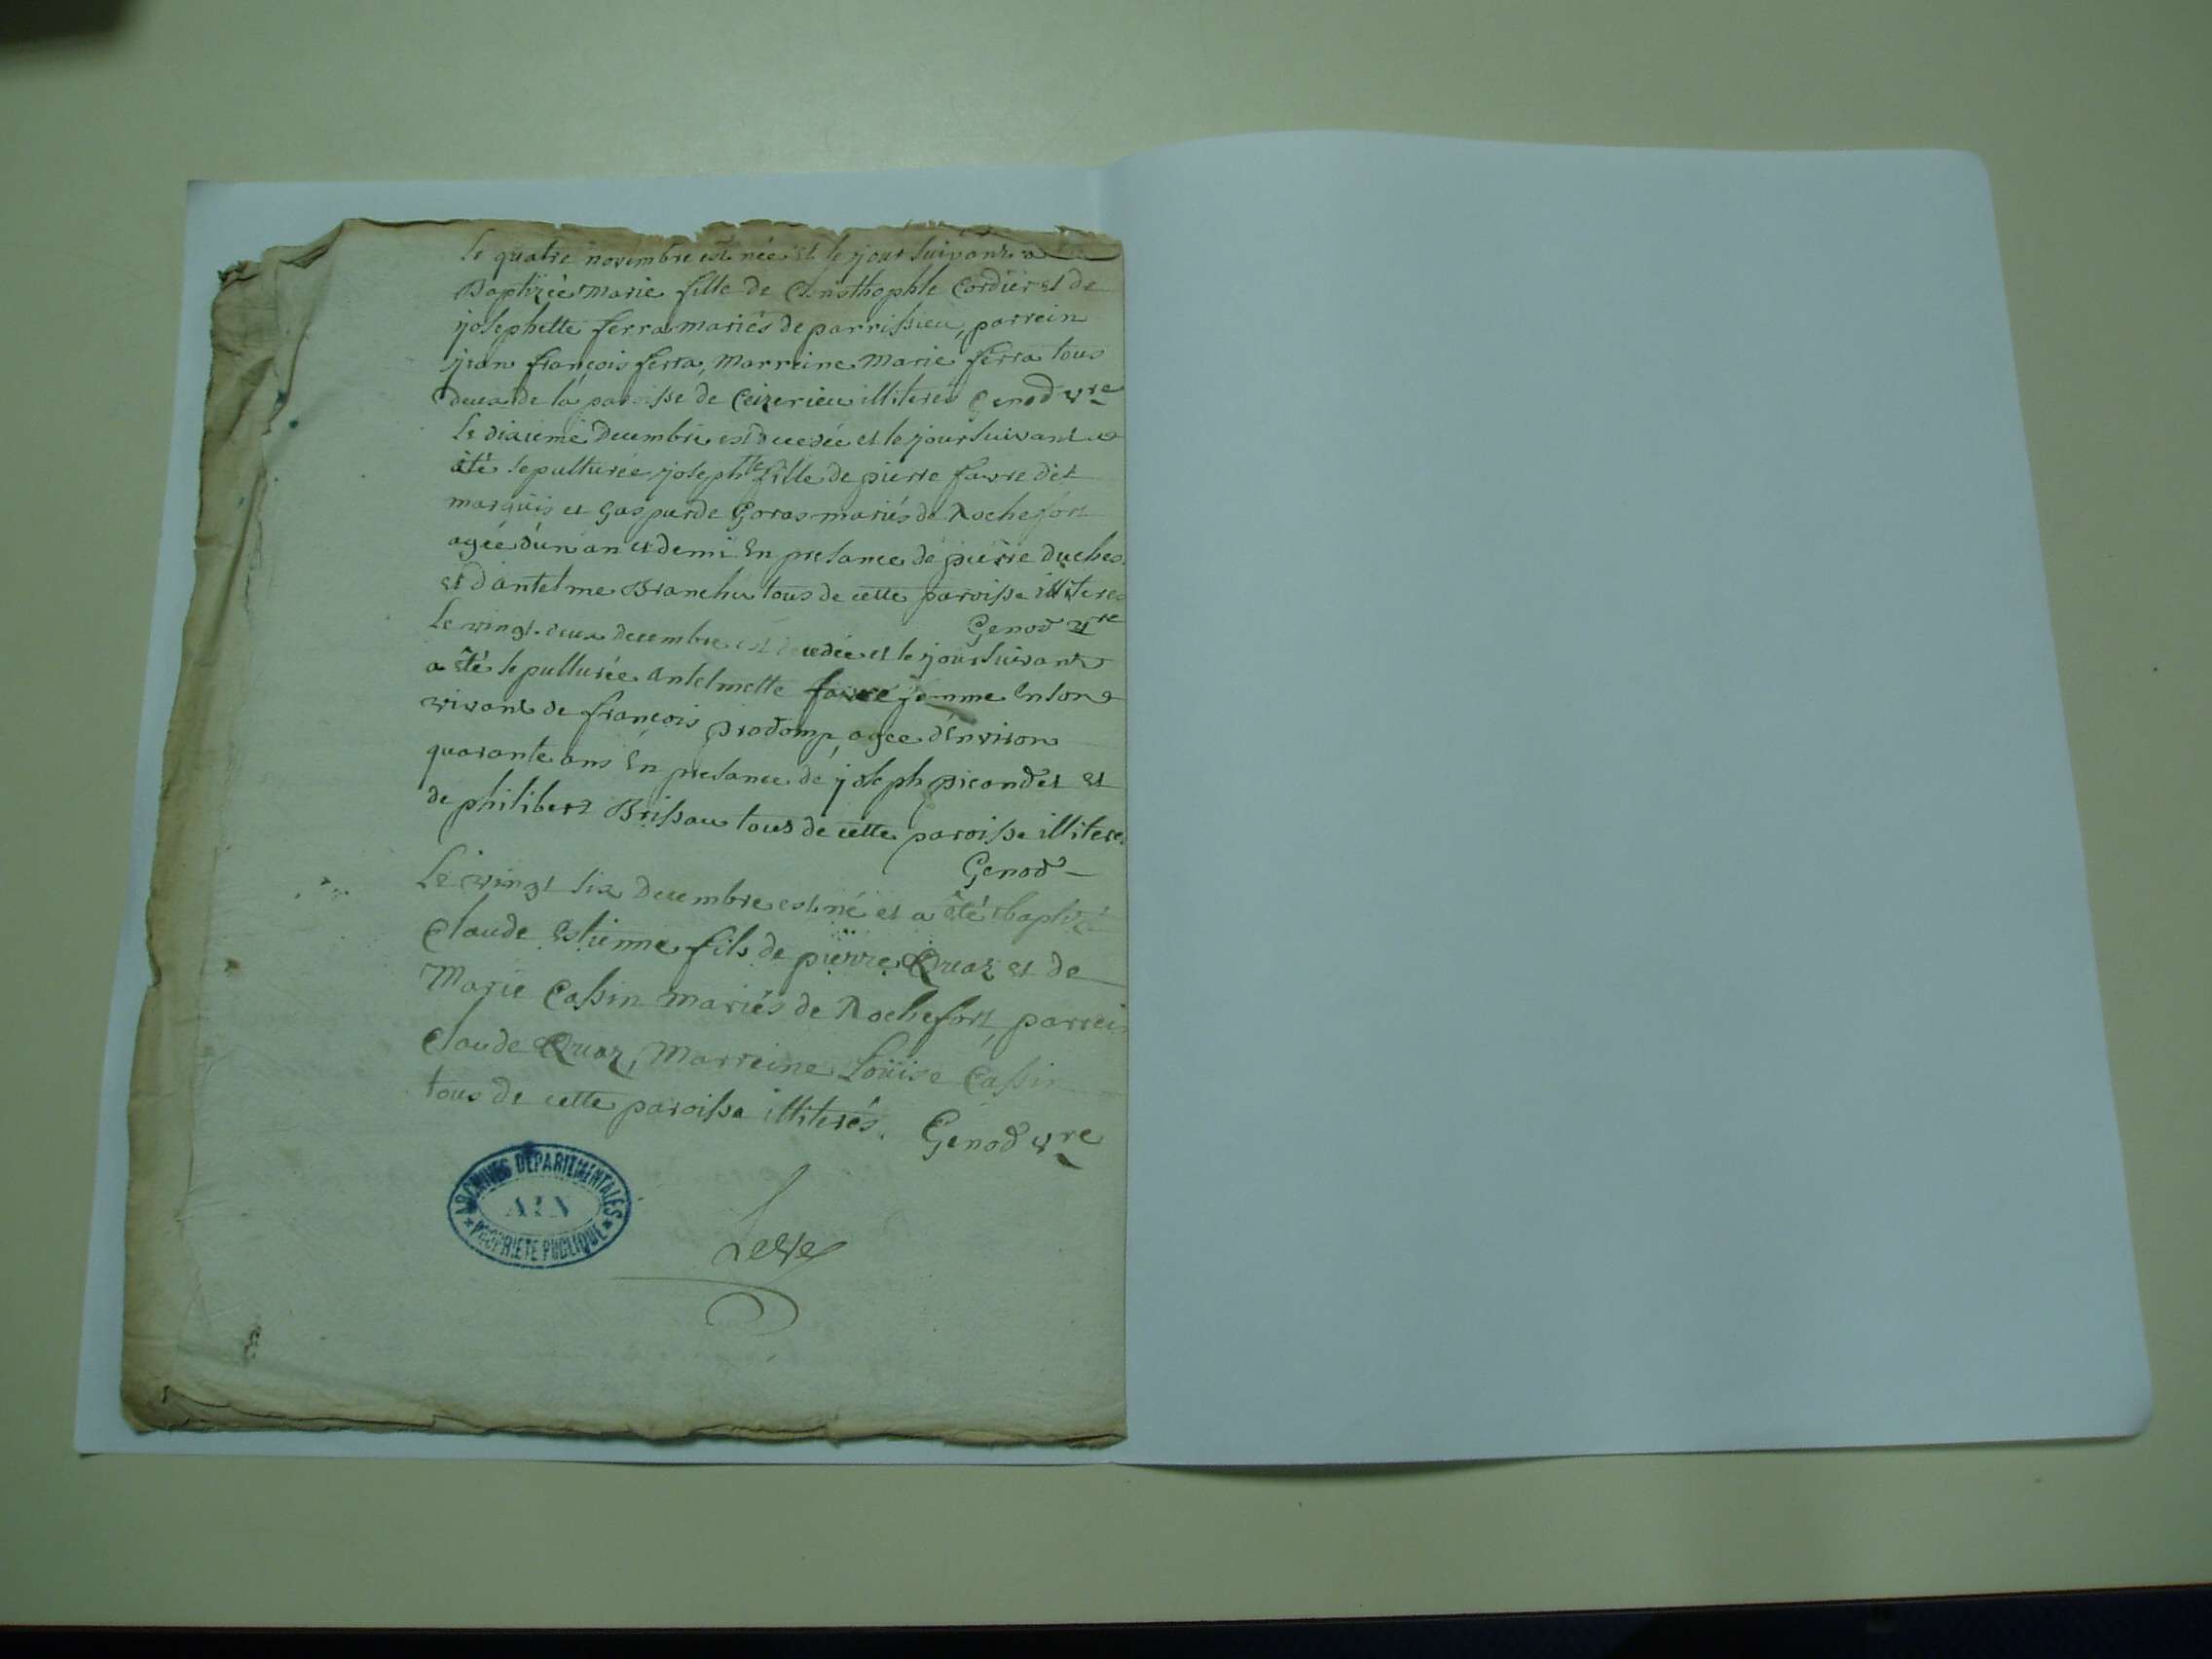 le quatre novembre est née et le jour suivant a
Baptizée Marie fille de Christhophle Cordier et de
josephette ferra mariés de parrissieu, parrein
jean françois ferra, Marreine Marie ferra tous
deux de la paroisse de Ceizerieu illiterés Genod vre
le dixieme Decembre est decedée et le jour suivant a
été sepulturée josephte fille de pierre favre dit
marquis et Gasparde Goras mariés de Rochefort
agée d'un an et demi En presance de pierre Duches
et d'antelme Branche tous de cette paroisse illiteres
Genod vre
Le vingt deux decembre est decedée et le jour suivant
a été sepulturée Antelmette favre femme En son
vivant de françois prodomp, agée d'Environ
quarante ans En presance de joseph picondet et
de philibert Brissau tous de cette paroisse illiteres
Genod
Le vingt six Decembre est né et a été baptizé
Claude Estienne fils de pierre Cruaz et de
Marie Cassin mariés de Rochefort, parrein
Claude Cruaz, Marreine Loüise Cassin
tous de cette paroisse illiterés. Genod vre
ARCHIVES DEPARTEMENTALES
AIN
PROPRIETE PUBLIQUE